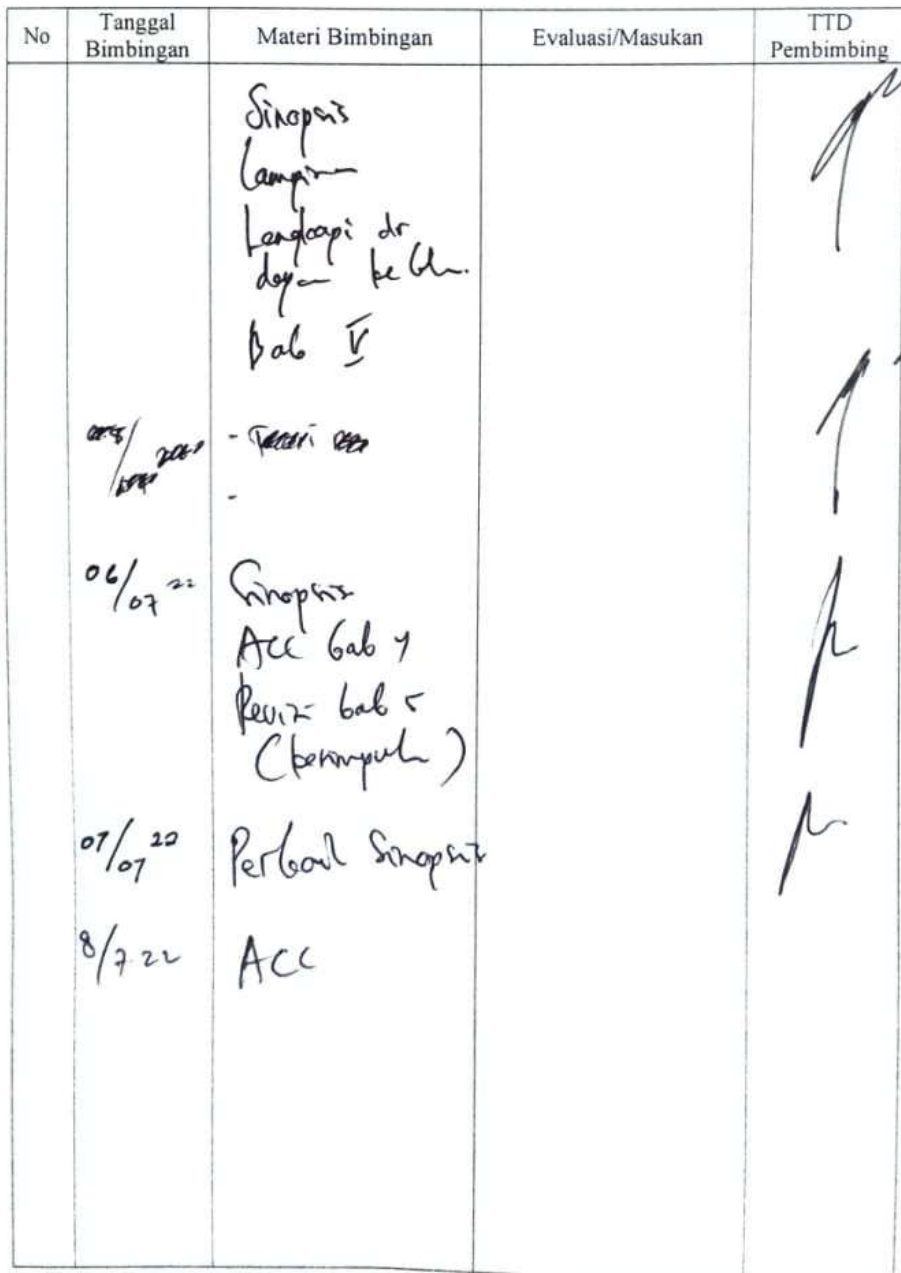 No Tanggal Bimbingan Materi Bimbingan Evaluasi/Masukan TTD Pembimbing
Sinopsis
Lampiran
Lengkapi dr
depan ke
Bab V
-
-
06/07 22 Sinopsis
ACC bab 4
Revisi bab 5
(kesimpulan)
07/07 22 Perbaiki Sinopsis
8/7 22 ACC